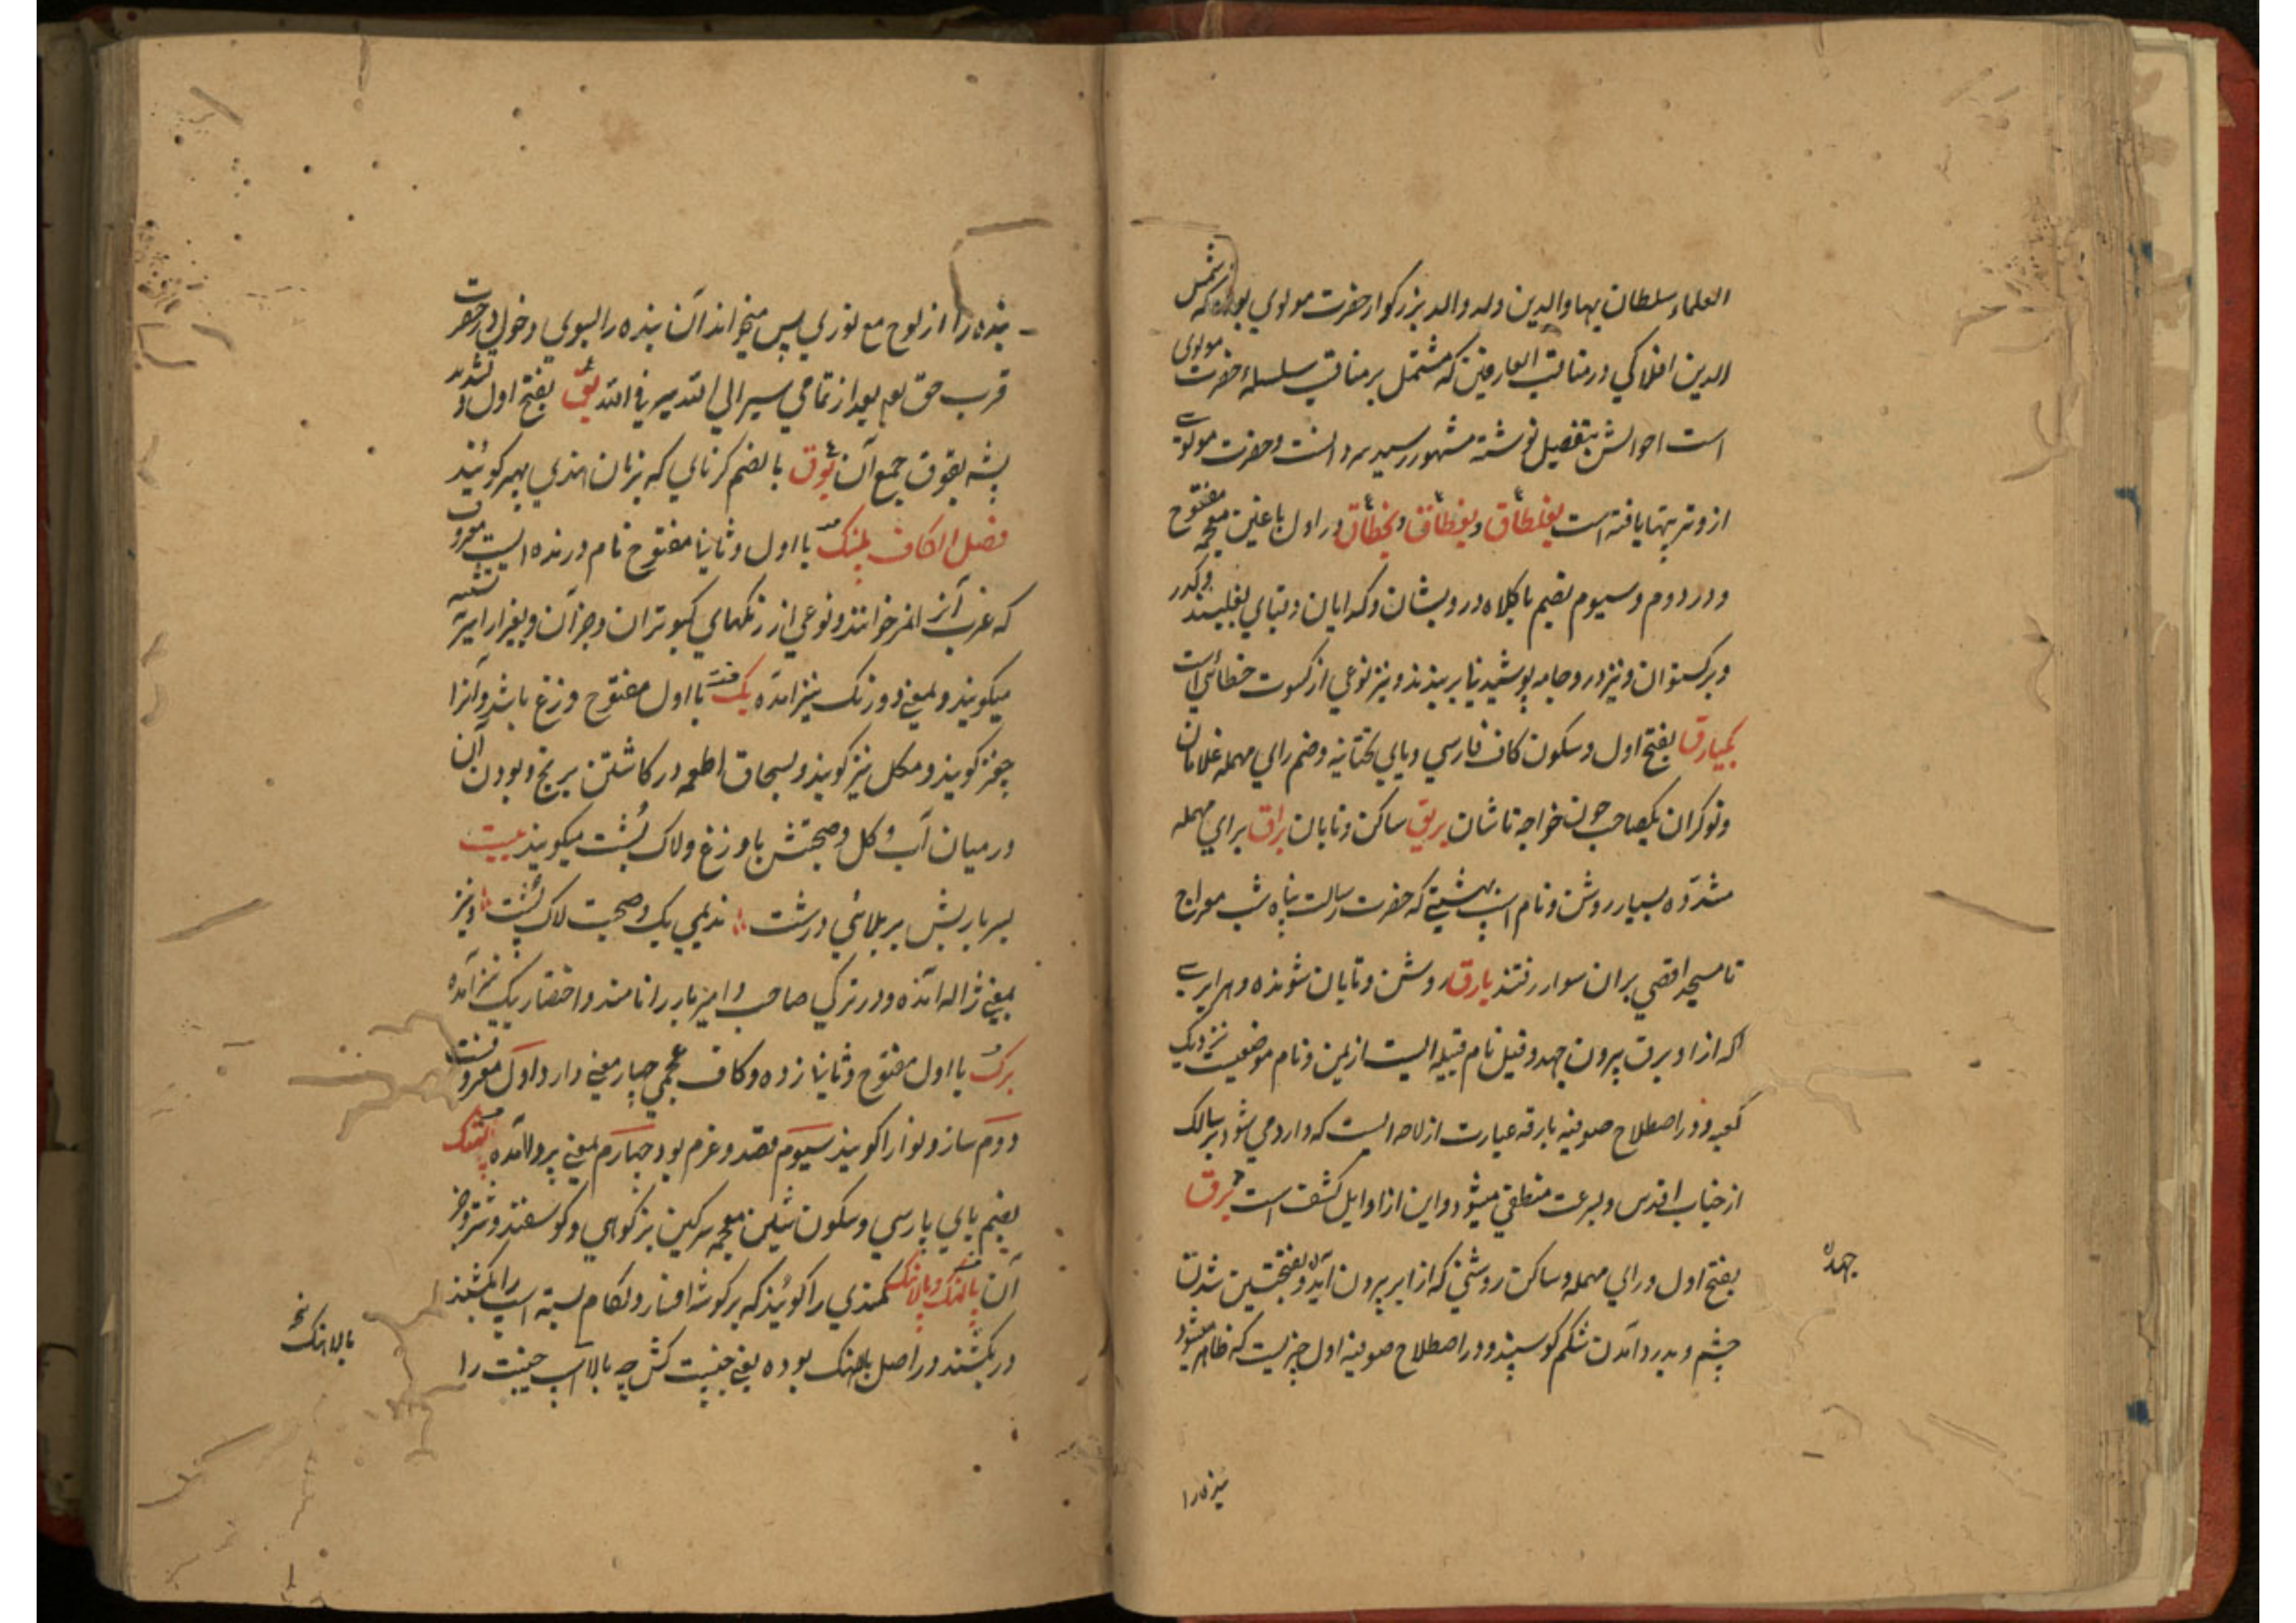 العلماء سلطان بهاو الدین ولد والد بزرکوار حضرت مولوي بوده که شمس
الدین افلاکي در مناقب العارفین که مشتمل بر مناقب سلسلهٔ حضرت مولوی
است احوالش بتفصیل نوشته مشهور سید سردانست و حضرت مولوی
از وتربیتها یافته است بغلطاق و بغطاق و بخطاق در اول با غین معجمه مفتوح
و در دوم و سیوم بضم با کلاه درویشان و کدایان و قبای
و برکستوان و نیز در و جامه پوشیدنیا بربندند و نیز نوعي از کسوت خطائي است
بکیارق بفتح اول و سکون کاف فارسي و یاي تحتانیه و ضم راي مهمله غلامان
و نوکران یکصاحب چون خواجه تاشان بریق ساکن و تابان براق براي مهمله
مشدّده بسیار روشن و نام اسپ بهشتي که حضرت رسالت پناه شب معراج
تا مسجد اقصي بران سوار رفتند بارق روشن و تابان شونده و هر ابري
که ازا و برق بیرون جهد و قیل نام قبیله ایست از یمن و نام موضعیست نزدیک
کعبه و در اصطلاح صوفیه بارقه عبارت از لاحه ایست که وارد مي شود بر سالک
از جناب اقدس و بسرعت منطفي میشود و این از اوایل کشف است برق
بفتح اول و راي مهمله و ساکن روشني که از ابر بیرون آید و بفتحتین شدن
چشم و بدرد آمدن شکم کوسپند و در اصطلاح صوفیه اول چیزیست که ظاهر میشود
جهد
بنده را
بنده را از لوح مع نوري پس میخواند آن بنده را بسوي دخول در حضرت
قرب حق تعم بعد از تمامي سیر الي الله سیر في الله بق بفتح اول و تشدید
پشه بقوق جمع آن بوق بالضم کرناي که بزبان هندي بهیر کویند
فصل الکاف پلنک با اول و ثانیا مفتوح نام درنده ایست معروف
که عرب آنرا نمر خوانند و نوعي از رنکهاي کبوتران و جز آن و
میکویند و بمعني دو رنک نیز آمده بک با اول مفتوح وزغ باشد و آنرا
چغز کویند و مکل نیز کویند و بسحاق اطعمه در کاشتن برنج و بودن آن
در میان آب و کل و صحبتش با وزغ و لاک پشت میکوید بیت
بسر بار بش بر بلائي درشت ندیمي بک و صحبت لاک پشت و نیز
بمعني ژاله آمده و در ترکي صاحب و امیر بار را نامند و اختصار بیک نیز آمده
برک با اول مفتوح و ثانیا زده و کاف عجمي چهار معني دارد اول معروفست
دوم ساز و نوا را کویند سیوم قصد و عزم بود چهارم بمعني پروا آمده پشک
بضم باي پارسي و سکون شین معجمه سرکین بز کوهي و کوسفند و شتر و جز
آن پالهنک و پالاهنک کمندي را کویند که بر کوشه افسار و لکام بسته اسپ را بکشند
در بکشند در اصل پالاهنک بوده یعني جنیبت کش چه بالا اسپ جنیبت را
بالاهنک نخ